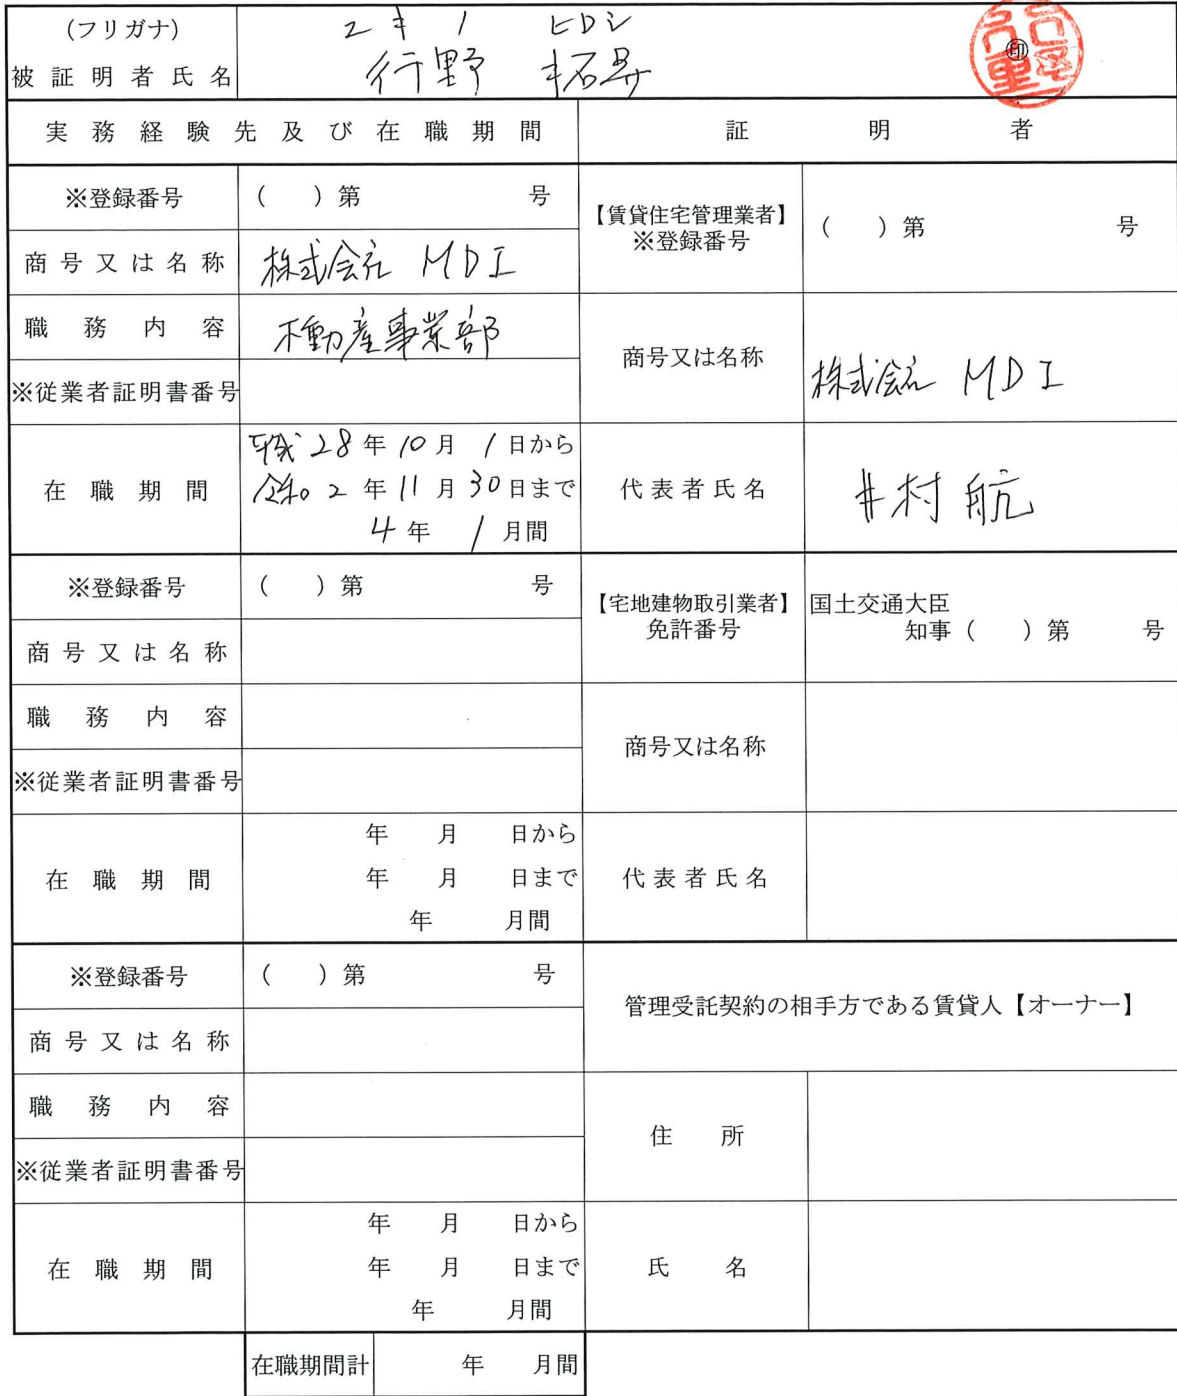 (フリガナ)
被証明者氏名
行野
㊞
実務経験先及び在職期間
証明者
※登録番号
( )第 号
【賃貸住宅管理業者】
※登録番号
( )第 号
商号又は名称
株式会社 MDI
職務内容
不動産事業部
商号又は名称
株式会社 MDI
※従業者証明書番号
在職期間
平成28年10月1日から
令和2年11月30日まで
4年1月間
代表者氏名
井村航
※登録番号
( )第 号
【宅地建物取引業者】
免許番号
国土交通大臣
知事( )第 号
商号又は名称
職務内容
商号又は名称
※従業者証明書番号
在職期間
年 月 日から
年 月 日まで
年 月間
代表者氏名
※登録番号
( )第 号
管理受託契約の相手方である賃貸人【オーナー】
商号又は名称
職務内容
住所
※従業者証明書番号
在職期間
年 月 日から
年 月 日まで
年 月間
氏名
在職期間計 年 月間